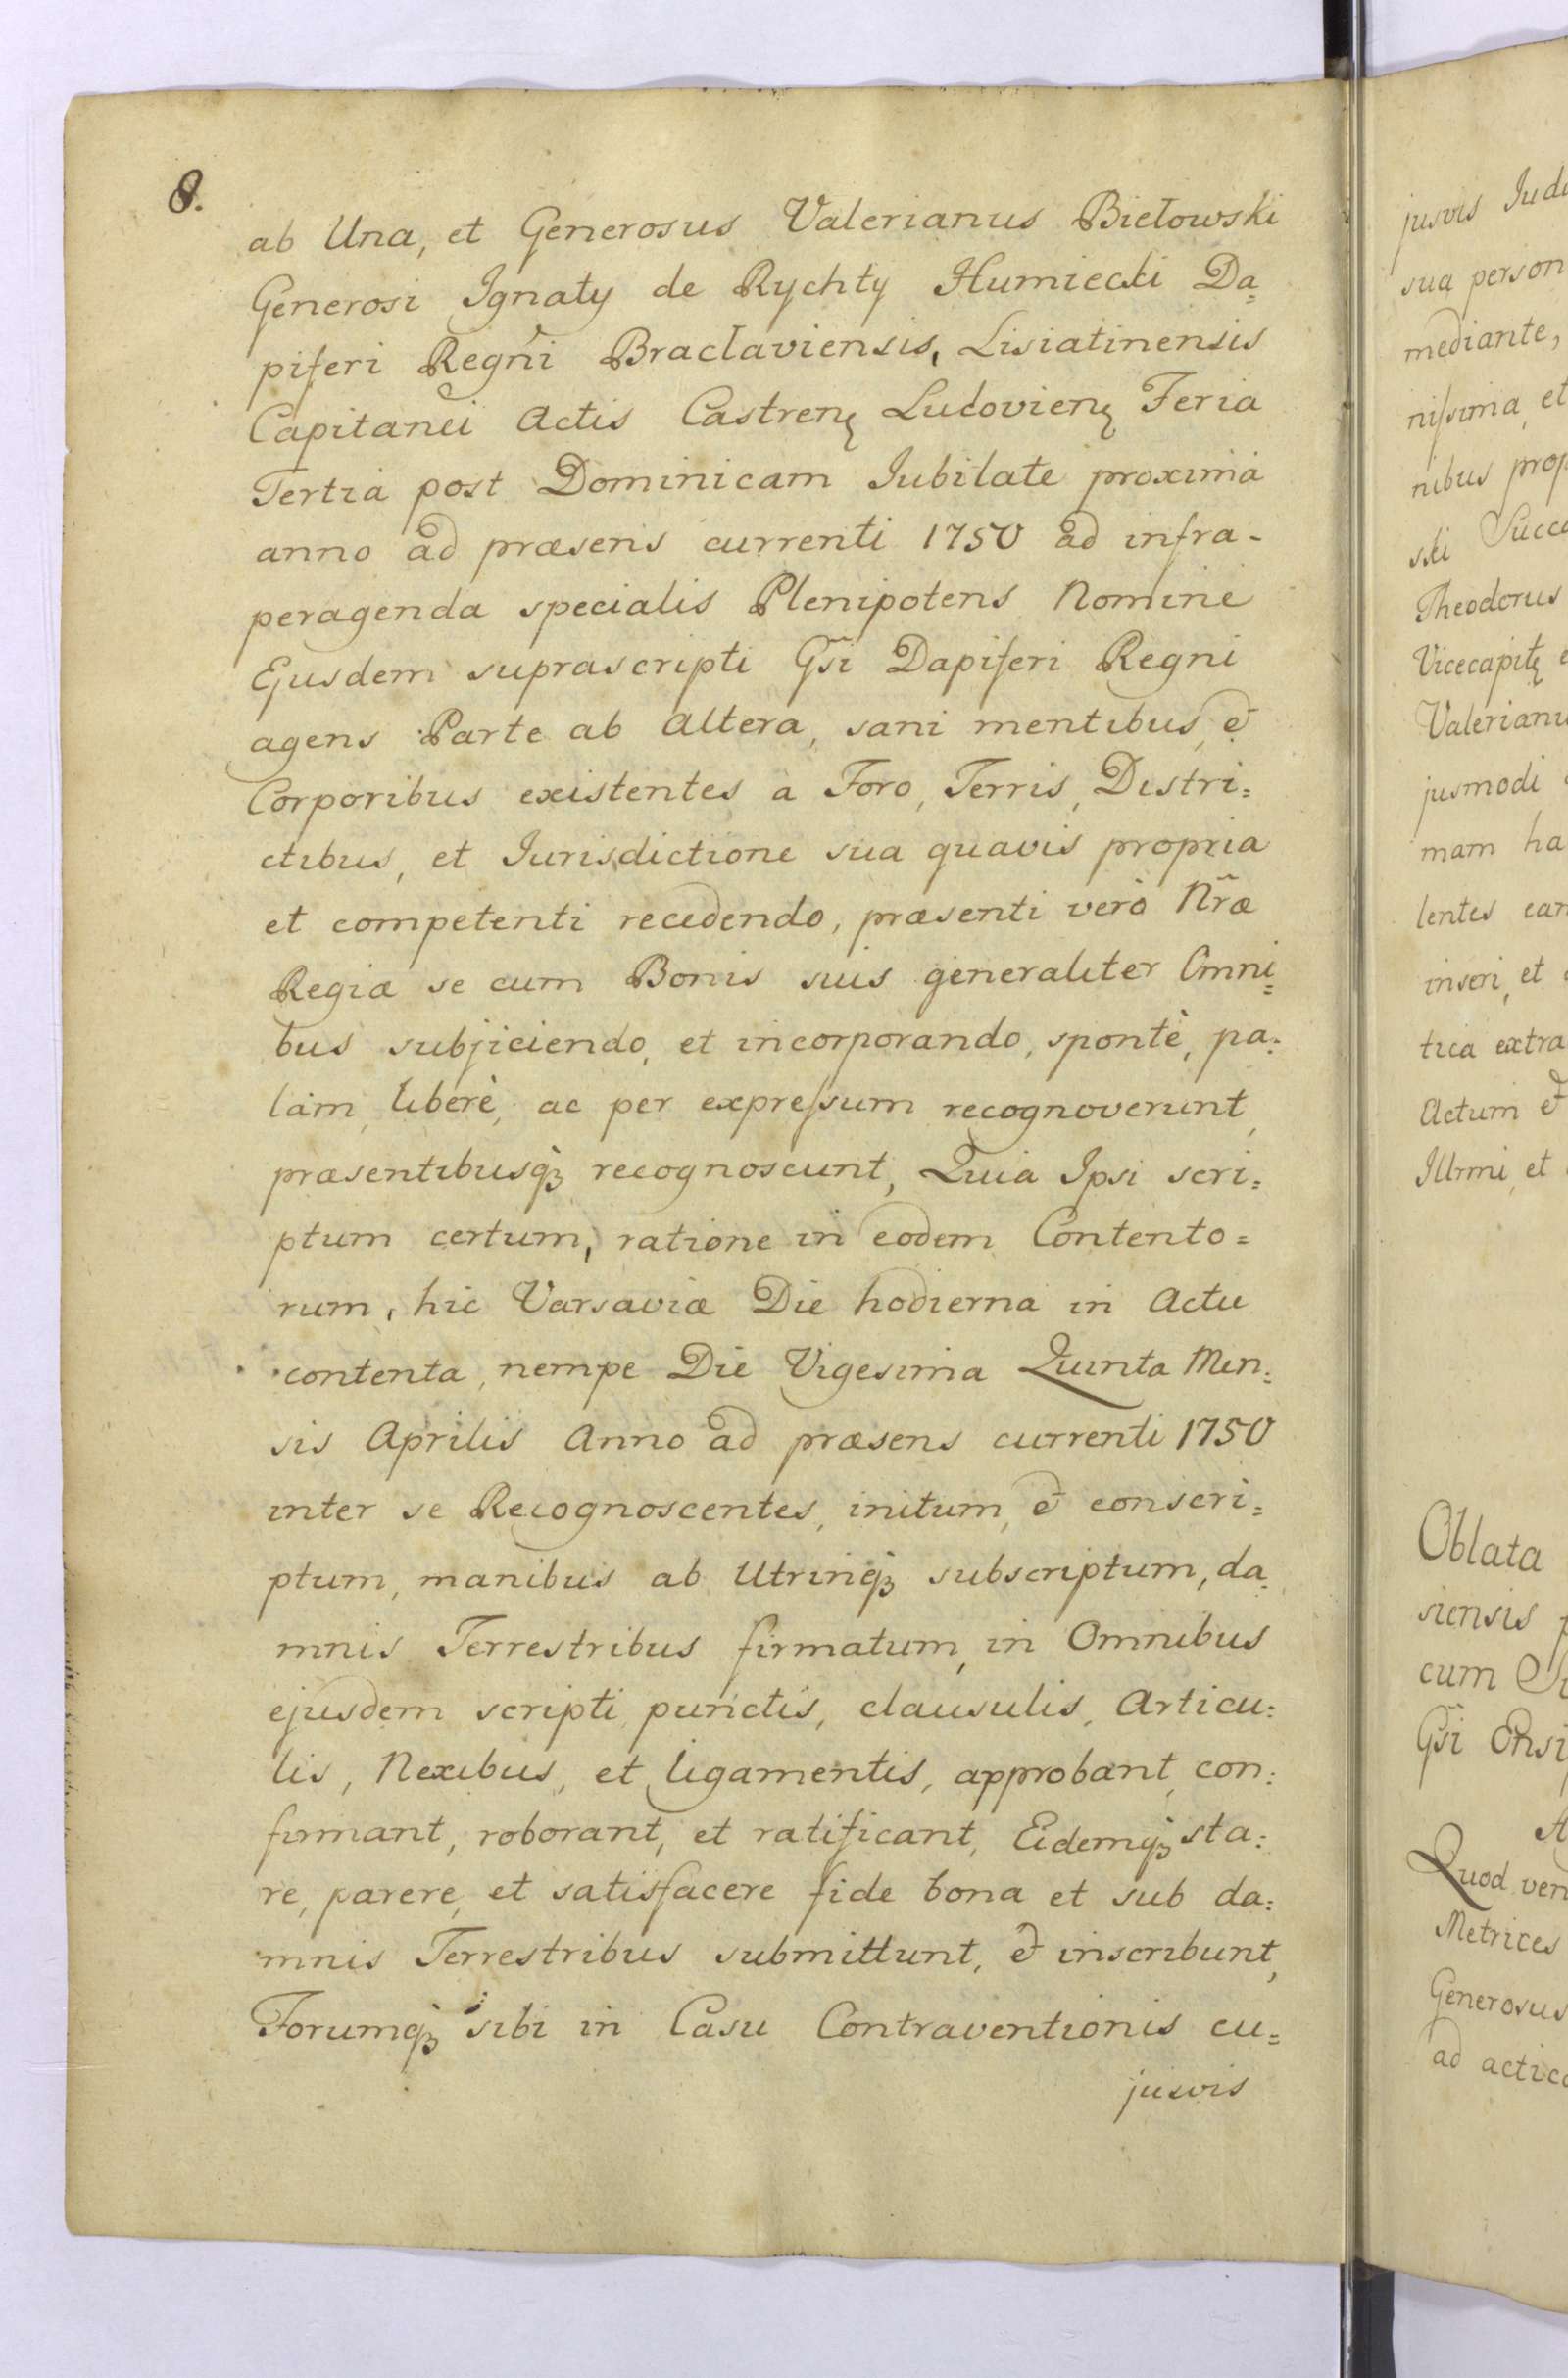 8.
ab Una, et Generosus Valerianus Biełowski
Generosi Ignaty de Rychty Humiecki Da=
piferi Regni Bracłaviensis, Lisiatinensis
Capitanei Actis Castrenę Ludovienę Feria
Tertia post Dominicam Iubilate proxima
anno ad præsens currenti 1750 ad infra-
peragenda specialis Plenipotens Nomine
Ejusdem suprascripti Gsi Dapiferi Regni
agens Parte ab altera, sani mentibus, et
Corporibus existentes a Foro, Terris, Distri=
ctibus, et Iurisdictione sua quavis propria
et competenti recedendo, præsenti verò Nræ
Regiæ se cum Bonis suis generaliter Omni=
bus subjiciendo, et incorporando, spontè, pa=
làm, liberè, ac per expreſsum recognoverunt,
præsentibusqꝫ recognoscunt, Quia Ipsi scri=
ptum certum, ratione in eodem Contento=
rum, hic Varsaviæ Die hodierna in Actu
contenta, nempe Die Vigesima Quinta Men=
sis Aprilis Anno ad præsens currenti 1750
inter se Recognoscentes, initum, et conscri=
ptum, manibus ab Utrinqꝫ subscriptum, da=
mnis Terrestribus firmatum, in Omnibus
ejusdem scripti punctis, clausulis, Articu=
lis, Nexibus, et ligamentis, approbant, con=
firmant, roborant, et ratificant, Eidemqꝫ sta=
re, parere, et satisfacere fide bona et sub da=
mnis Terrestribus submittunt, et inscribunt,
Forumqꝫ sibi in Casu Contraventionis cu=
jusvis
jusvis
sua person
mediante,
niſsima, et
nibus prop
ski
Theodorus
Vicecapitę
Valerianu
jusmodi
mam ha
lentes ean
inseri, et
tica extra
Actum et
Illrmi, et
Oblata
siensis
cum
Gsi Ensi
Quod ven
Metrices
Generosus
ad actica